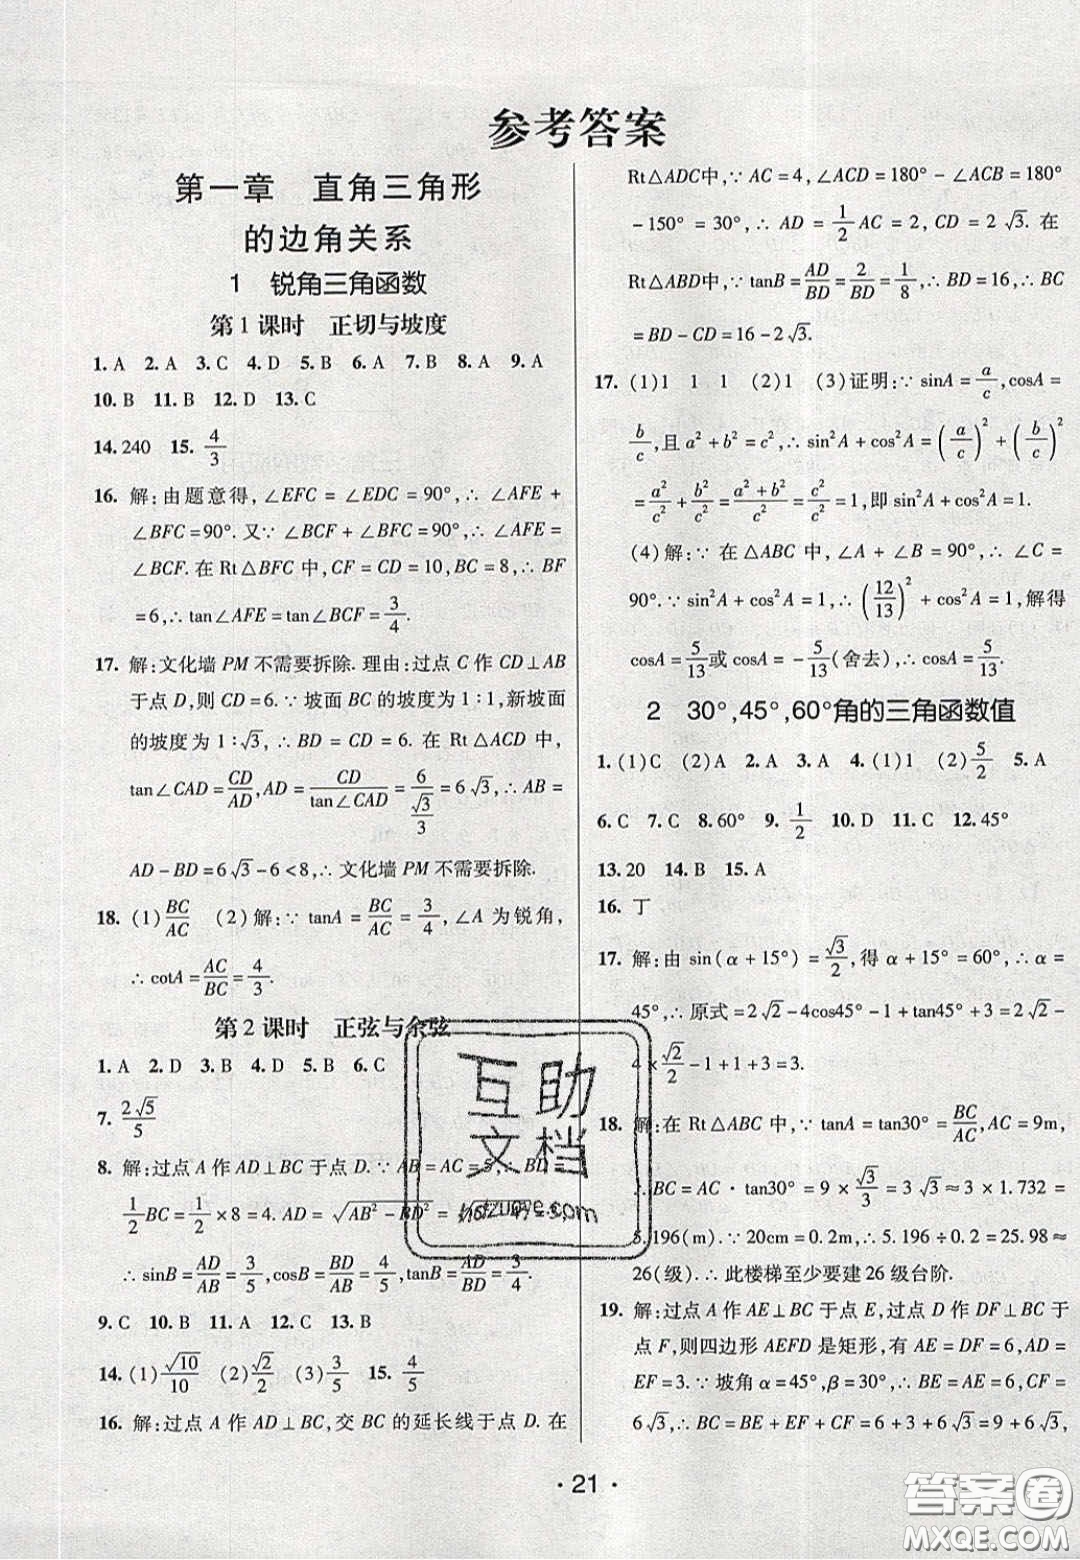 参考答案
第一章 直角三角形
的边角关系
1 锐角三角函数
第1课时 正切与坡度
1. A 2. A 3. C 4. D 5. B 6. A 7. B 8. A 9. A
10. B 11. B 12. D 13. C
14. 240 15. 4/3
16. 解:由题意得,∠EFC=∠EDC=90°,∴∠AFE+
∠BFC=90°.又∵∠BCF+∠BFC=90°,∴∠AFE=
∠BCF.在Rt△BFC中,CF=CD=10,BC=8,∴BF
=6,∴tan∠AFE=tan∠BCF=3/4.
17. 解:文化墙PM不需要拆除.理由:过点C作CD⊥AB
于点D,则CD=6.∵坡面BC的坡度为1:1,新坡面
的坡度为1:√3,∴BD=CD=6.在Rt△ACD中,
tan∠CAD=CD/AD,AD=CD/tan∠CAD=6/(√3/3)=6√3,∴AB=
AD-BD=6√3-6<8,∴文化墙PM不需要拆除.
18. (1)BC/AC (2)解:∵tanA=BC/AC=3/4,∠A为锐角,
∴cotA=AC/BC=4/3.
第2课时 正弦与余弦
1. A 2. D 3. B 4. D 5. B 6. C
7. 2√5/5
8. 解:过点A作AD⊥BC于点D.∵AB=AC=5,∴BD=
1/2BC=1/2×8=4.AD=√(AB²-BD²)=√(5²-4²)=3,
∴sinB=AD/AB=3/5,cosB=BD/AB=4/5,tanB=AD/BD=3/4.
9. C 10. B 11. C 12. C 13. B
14. (1)√10/10 (2)√2/2 (3)3/5 15. 4/5
16. 解:过点A作AD⊥BC,交BC的延长线于点D.在
Rt△ADC中,∵AC=4,∠ACD=180°-∠ACB=180°
-150°=30°,∴AD=1/2AC=2,CD=2√3.在
Rt△ABD中,∵tanB=AD/BD=2/BD=1/8,∴BD=16,∴BC
=BD-CD=16-2√3.
17. (1)1 1 1 (2)1 (3)证明:∵sinA=a/c,cosA=
b/c,且a²+b²=c²,∴sin²A+cos²A=(a/c)²+(b/c)²
=a²/c²+b²/c²=(a²+b²)/c²=c²/c²=1,即sin²A+cos²A=1.
(4)解:∵在△ABC中,∠A+∠B=90°,∴∠C=
90°.∵sin²A+cos²A=1,∴(12/13)²+cos²A=1,解得
cosA=5/13或cosA=-5/13(舍去),∴cosA=5/13.
2 30°,45°,60°角的三角函数值
1. (1)C (2)A 2. A 3. A 4. (1)1 (2)5/2 5. A
6. C 7. C 8. 60° 9. 1/2 10. D 11. C 12. 45°
13. 20 14. B 15. A
16. 丁
17. 解:由sin(α+15°)=√3/2,得α+15°=60°,∴α=
45°,∴原式=2√2-4cos45°-1+tan45°+3=2√2-
4×√2/2-1+1+3=3.
18. 解:在Rt△ABC中,∵tanA=tan30°=BC/AC,AC=9m,
∴BC=AC·tan30°=9×√3/3=3√3≈3×1.732=
5.196(m).∵20cm=0.2m,∴5.196÷0.2=25.98≈
26(级).∴此楼梯至少要建26级台阶.
19. 解:过点A作AE⊥BC于点E,过点D作DF⊥BC于
点F,则四边形AEFD是矩形,有AE=DF=6,AD=
EF=3.∵坡角α=45°,β=30°,∴BE=AE=6,CF=
6√3,∴BC=BE+EF+CF=6+3+6√3=9+6√3,
·21·
互助
文档
答案卷
MXQE.COM